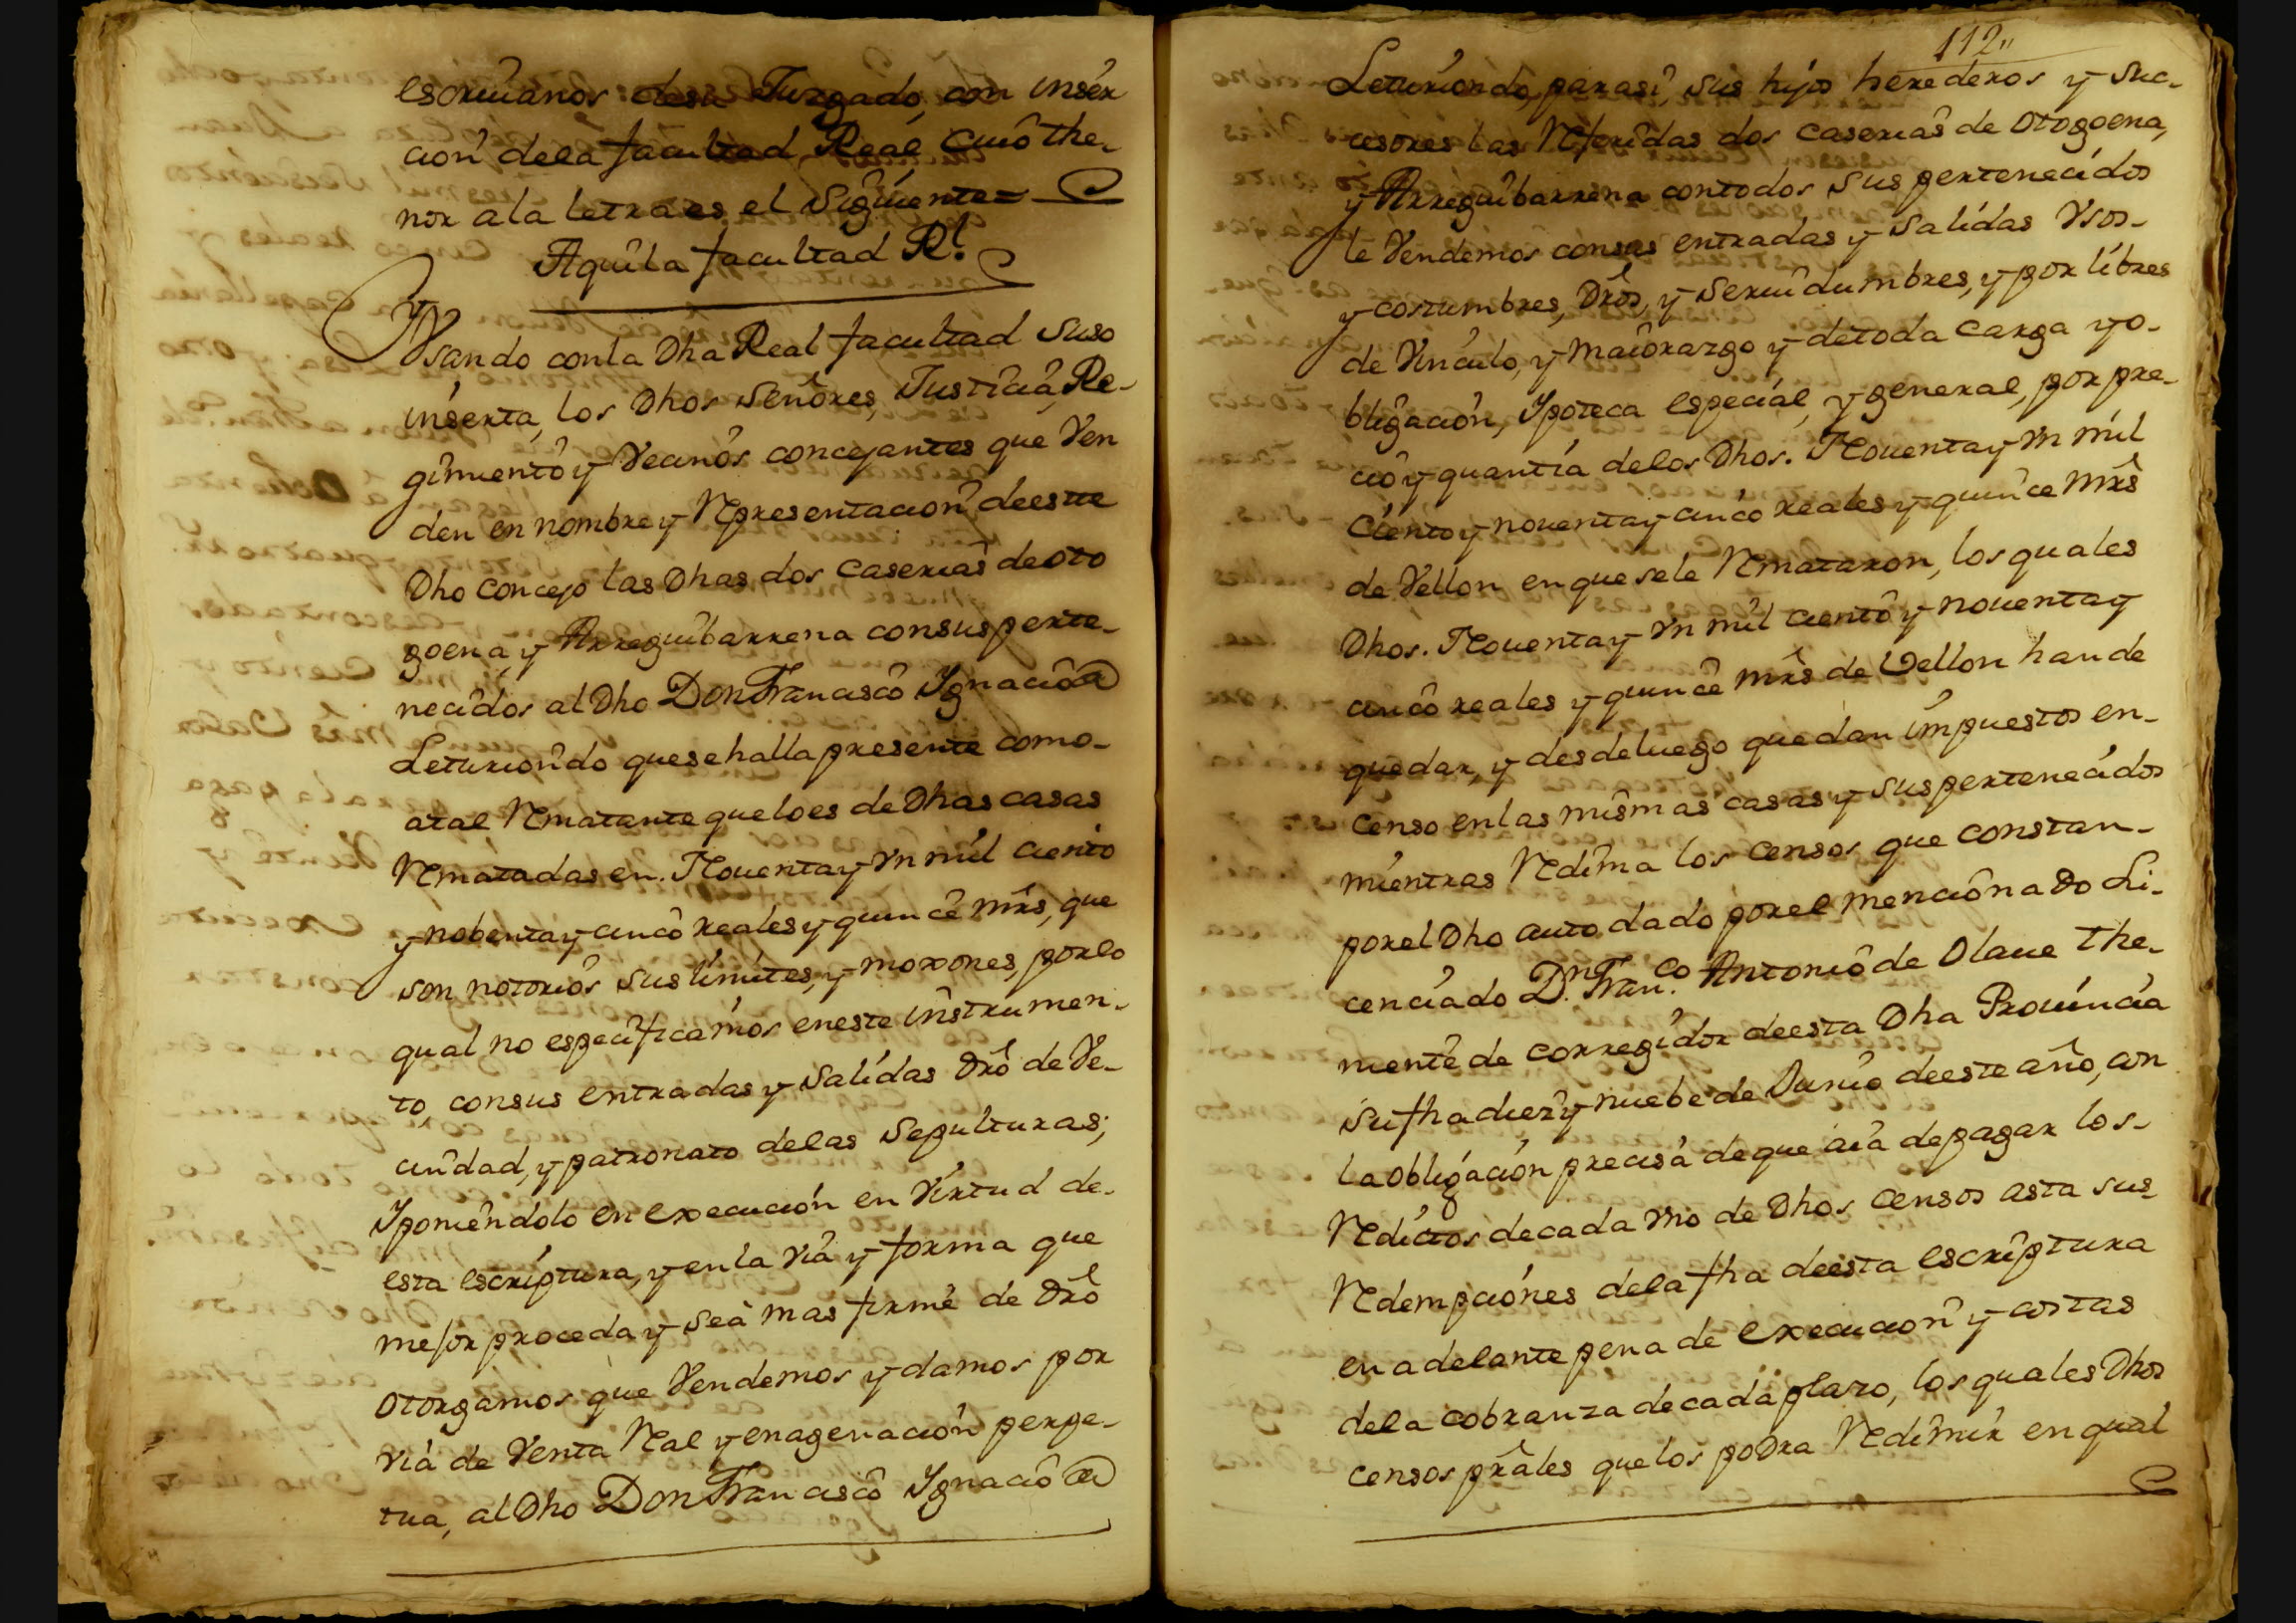 escriuanos desu Juzgado, con inser
cion dela facultad Real Cuio the-
nor ala letra es el Siguiente=
Aqui la facultad Rl.
Vsando conla Dha Real facultad Suso
inserta, los Dhos Señores, Justicia, Re-
gimiento y Vecinos concejantes que Ven
den en nombre y Representacion deeste
Dho Concejo las Dhas dos Caserias de oto
goena, y Arreguibarrena consus perte-
necidos al Dho Don Francisco Ygnacio de
Leturiondo que se halla presente como-
atal Rematante que lo es de Dhas casas
Rematadas en. Nouentay Vn mil ciento
y nobentay cinco reales y quince mrs, que
son notorios sus limites, y moxones, porlo
qual no especificamos eneste instrumen-
to, consus entradas y Salidas Dro de Ve-
cindad, y patronato delas Sepulturas;
Yponiendolo en execucion en Virtud de-
esta escriptura, y en la Via y forma que
mejor proceda y sea mas firme de Dro
otorgamos que Vendemos y damos por
via de Venta Real y enagenacion perpe-
tua, al Dho Don Francisco Ygnacio de
112,,
Leturiondo, parasi, sus hijos herederos y suc-
cesores las Referidas dos caserias de otogoena,
y Arreguibarrena contodos sus pertenecidos
le Vendemos consus entradas y Salidas Vsos-
y costumbres, Dros, y Seruidumbres, y por libres
de Vinculo, y maiorazgo y detoda carga y o-
bligacion, Ypoteca especial, y general, por pre-
cio y quantia delos Dhos. Nouentay Vn mil
Ciento y nouentay cinco reales y quince mrs
de Vellon en que sele Remataron, los quales
Dhos. Nouentay Vn mil ciento y nouentay
cinco reales y quince mrs de Vellon han de
quedar, y desdeluego quedan impuestos en-
censo enlas mismas casas y sus pertenecidos
mientras Redima los censos que constan-
porel Dho auto dado porel mencionado Li-
cenciado Dn. Franco. Antonio de Olaue The-
niente de corregidor deesta Dha Prouincia
su fha diez y nuebe de Junio deeste año, con
la obligacion precisa deque aia depagar los-
Reditos decada vno de Dhos censos asta sus
Redempciones dela fha deesta escriptura
en adelante pena de execucion y costas
dela cobranza decada plazo, los quales Dhos
censos prales quelos podra Redimir en qual